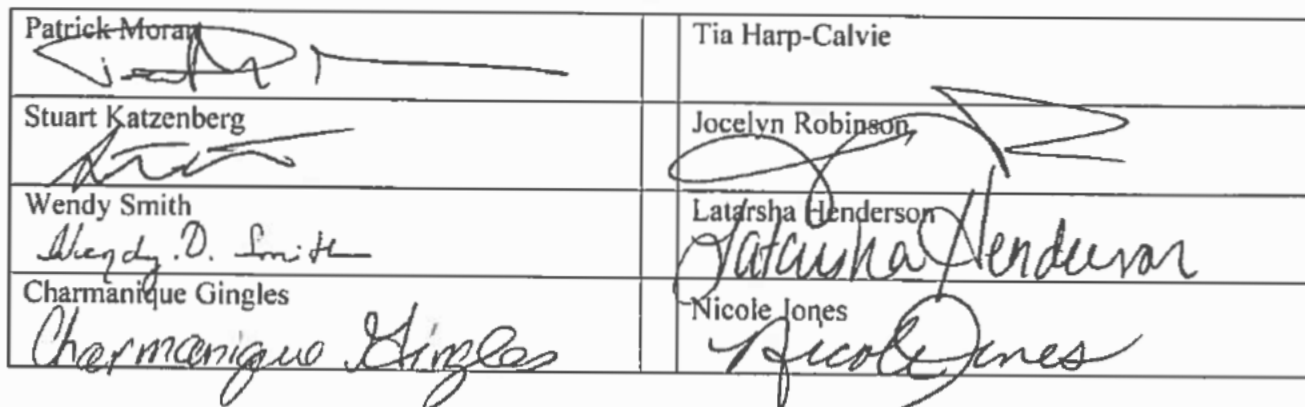 Patrick Moran
Tia Harp-Calvie
Stuart Katzenberg
Jocelyn Robinson
Wendy Smith
Wendy D. Smith
Latarsha Henderson
Latarsha Henderson
Charmanique Gingles
Charmanique Gingles
Nicole Jones
Nicole Jones